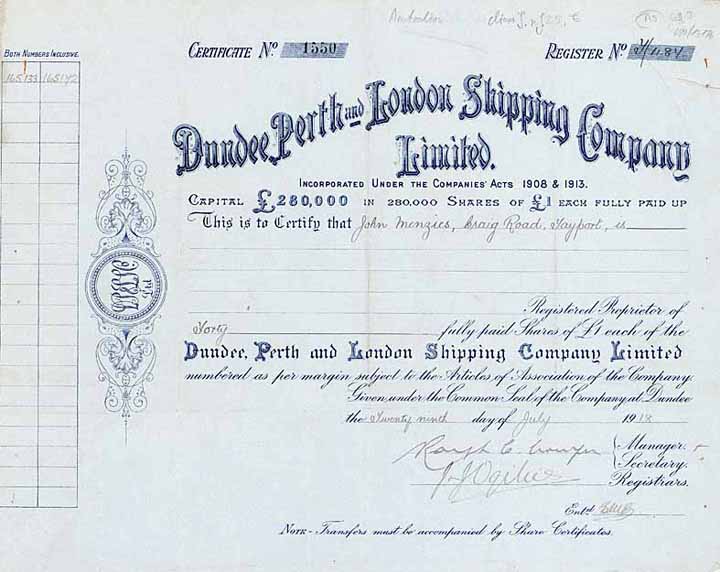 BOTH NUMBERS INCLUSIVE.
165133 165172
CERTIFICATE No 1550
REGISTER No
Dundee, Perth and London Shipping Company
Limited.
INCORPORATED UNDER THE COMPANIES' ACTS 1908 & 1913.
CAPITAL £280,000 IN 280,000 SHARES OF £1 EACH FULLY PAID UP
This is to Certify that John Menzies, Craig Road, Tayport, is
Registered Proprietor of
Forty fully paid Shares of £1 each of the
Dundee, Perth and London Shipping Company Limited
numbered as per margin subject to the Articles of Association of the Company.
Given under the Common Seal of the Company at Dundee
the Twenty ninth day of July 1918
Manager.
Secretary.
J. Ogilvie Registrars.
Entd
Ltd
NOTE - Transfers must be accompanied by Share Certificates.